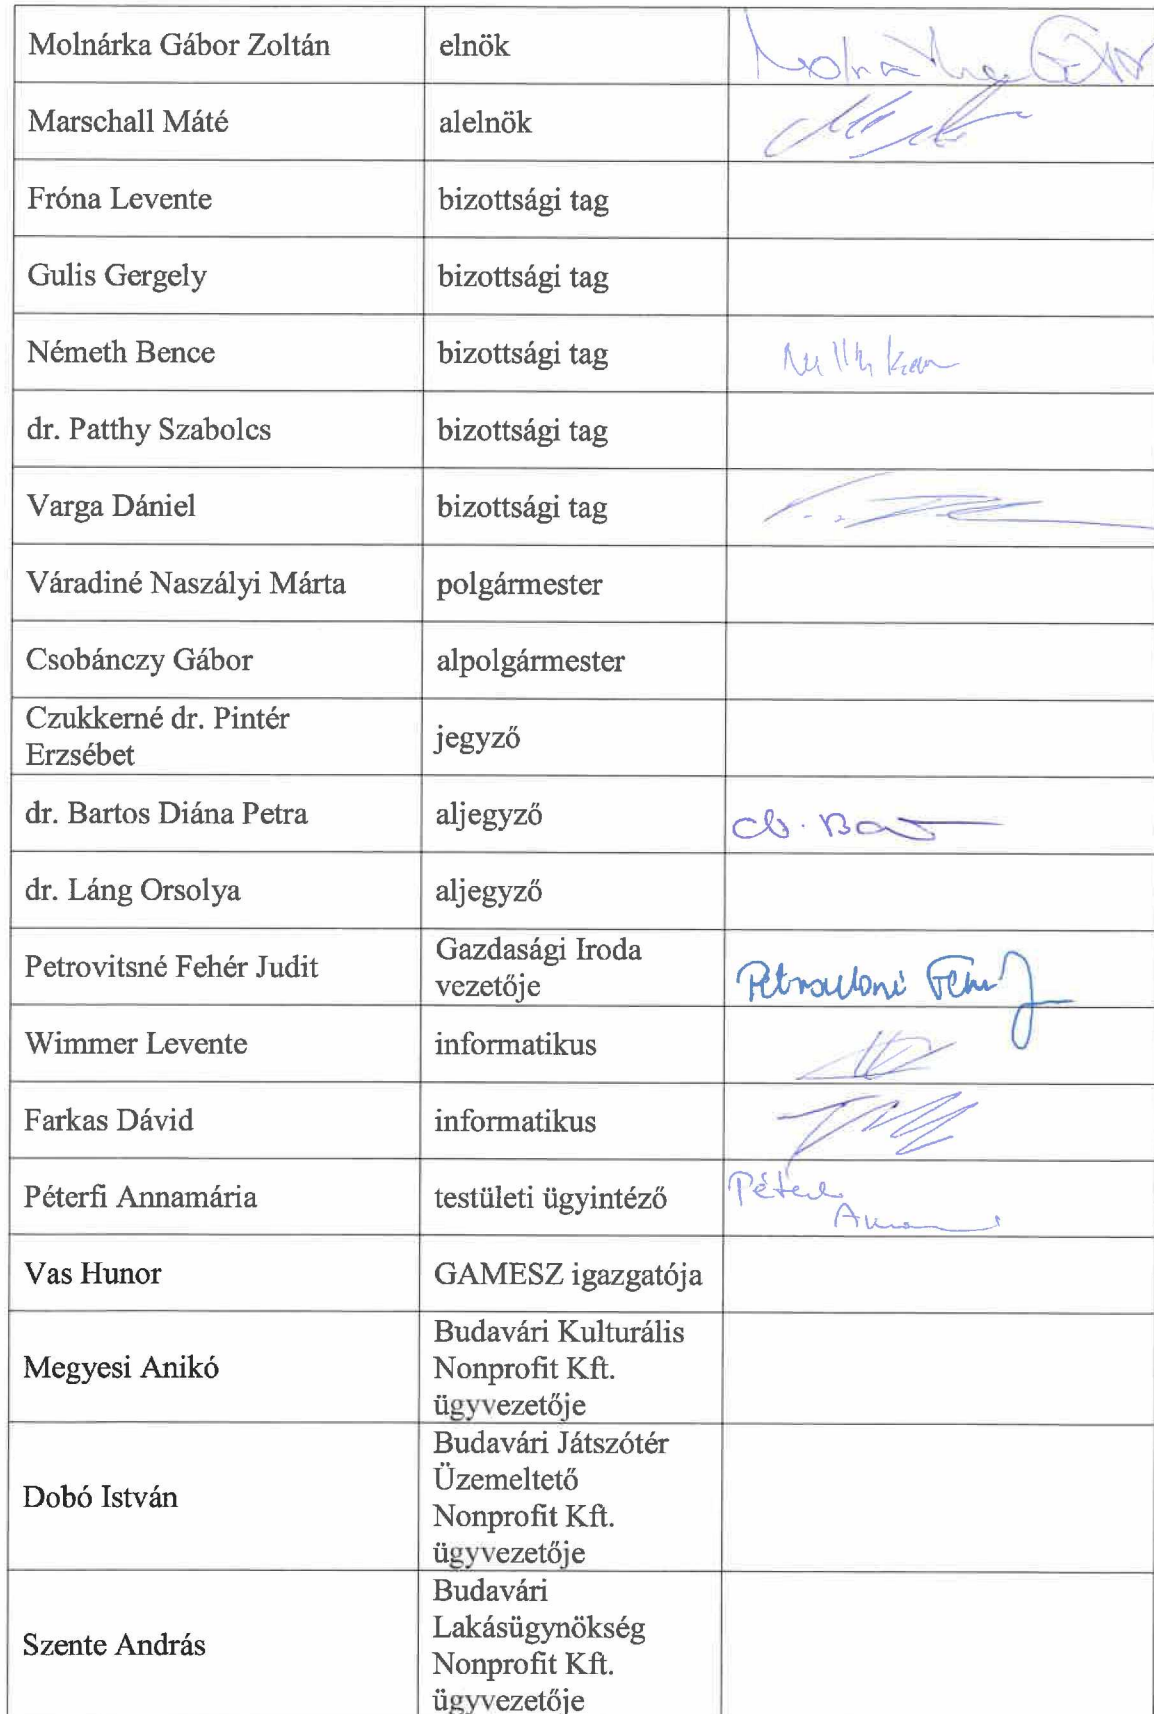 Molnárka Gábor Zoltán elnök Molnárka Gábor
Marschall Máté alelnök
Fróna Levente bizottsági tag
Gulis Gergely bizottsági tag
Németh Bence bizottsági tag
dr. Patthy Szabolcs bizottsági tag
Varga Dániel bizottsági tag
Váradiné Naszályi Márta polgármester
Csobánczy Gábor alpolgármester
Czukkerné dr. Pintér
Erzsébet
jegyző
dr. Bartos Diána Petra aljegyző
dr. Láng Orsolya aljegyző
Petrovitsné Fehér Judit
Gazdasági Iroda
vezetője
Wimmer Levente informatikus
Farkas Dávid informatikus
Péterfi Annamária testületi ügyintéző
Vas Hunor GAMESZ igazgatója
Megyesi Anikó
Budavári Kulturális
Nonprofit Kft.
ügyvezetője
Dobó István
Budavári Játszótér
Üzemeltető
Nonprofit Kft.
ügyvezetője
Szente András
Budavári
Lakásügynökség
Nonprofit Kft.
ügyvezetője